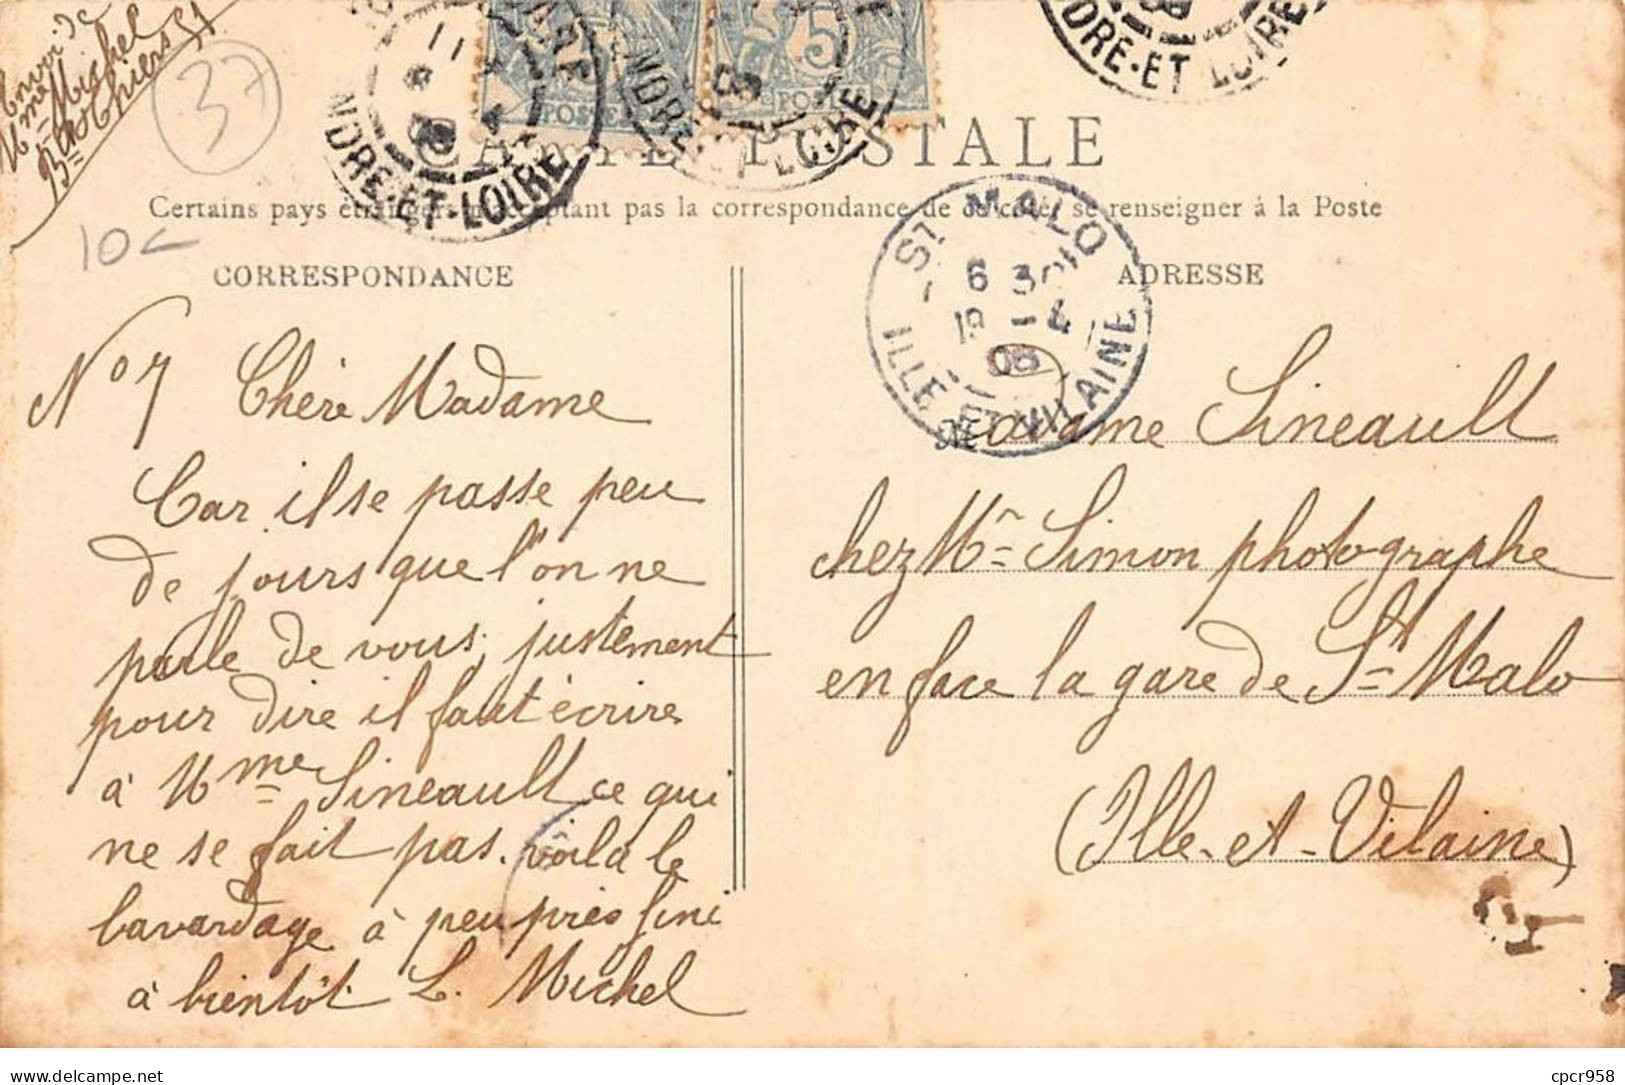 Envoi de
Mme Michel
Bd Thiers 51
37
10
INDRE-ET-LOIRE
5
POSTES
INDRE-ET-LOIRE
INDRE-ET-LOIRE
CARTE POSTALE
Certains pays étrangers n'acceptant pas la correspondance de ce côté, se renseigner à la Poste
CORRESPONDANCE
ADRESSE
ST MALO
6 30
19 - 4
08
ILLE-ET-VILAINE
No 7 Chère Madame
Car il se passe peu
de jours que l'on ne
parle de vous, justement
pour dire il faut écrire
à Mme Sineault ce qui
ne se fait pas. voilà le
bavardage à peu près fini
à bientôt L. Michel
Madame Sineault
chez Mr Simon photographe
en face la gare de St Malo
(Ille-et-Vilaine)
delcampe.net
cpcr958